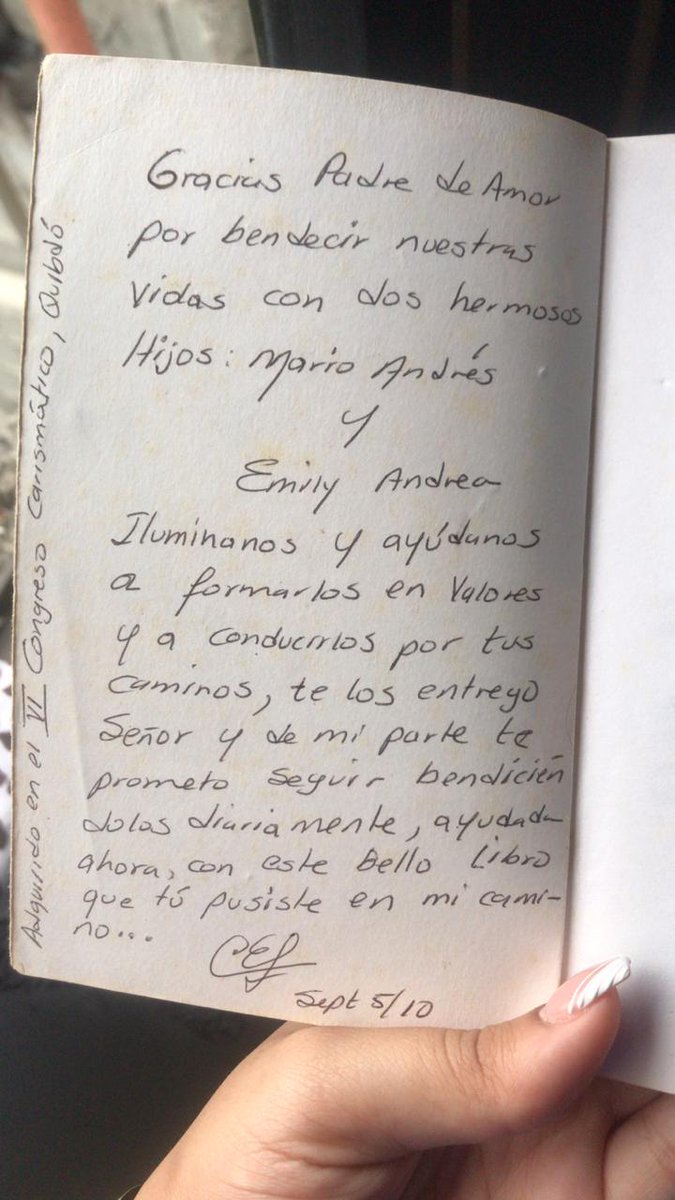 Gracias Padre de Amor
por bendecir nuestras
vidas con dos hermosos
Hijos: Mario Andrés
y
Emily Andrea
Iluminanos y ayúdanos
a formarlos en Valores
y a conducirlos por tus
caminos, te los entrego
Señor y de mi parte te
prometo seguir bendicién
dolos diariamente, ayudada
ahora, con este bello Libro
que tú pusiste en mi cami-
no...
Sept 5/10
Adquirido en el VI Congreso Carismático, Quibdó